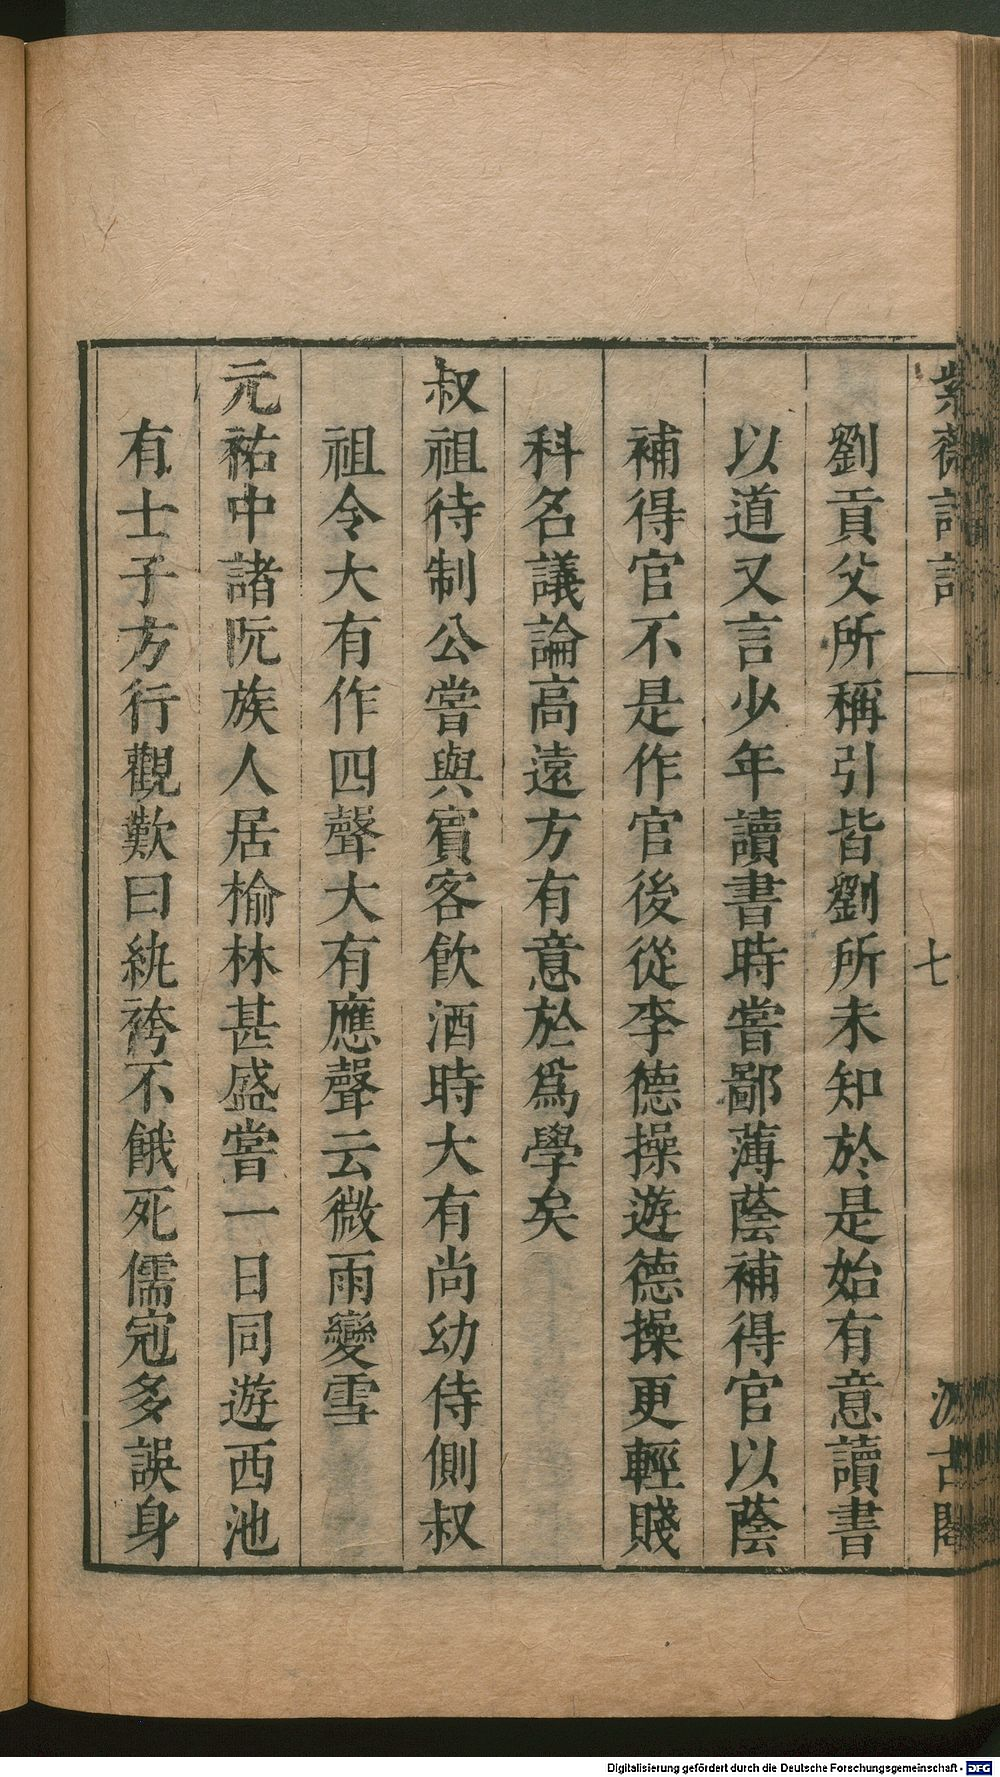 紫薇詩話
七
汲古閣
劉貢父所稱引皆劉所未知於是始有意讀書
以道又言少年讀書時嘗鄙薄蔭補得官以蔭
補得官不是作官後從李德操遊德操更輕賤
科名議論高遠方有意於爲學矣
叔祖待制公嘗與賓客飲酒時大有尚幼侍側叔
祖令大有作四聲大有應聲云微雨變雪
元祐中諸阮族人居榆林甚盛嘗一日同遊西池
有士子方行觀歎曰紈袴不餓死儒冠多誤身
Digitalisierung gefördert durch die Deutsche Forschungsgemeinschaft - DFG